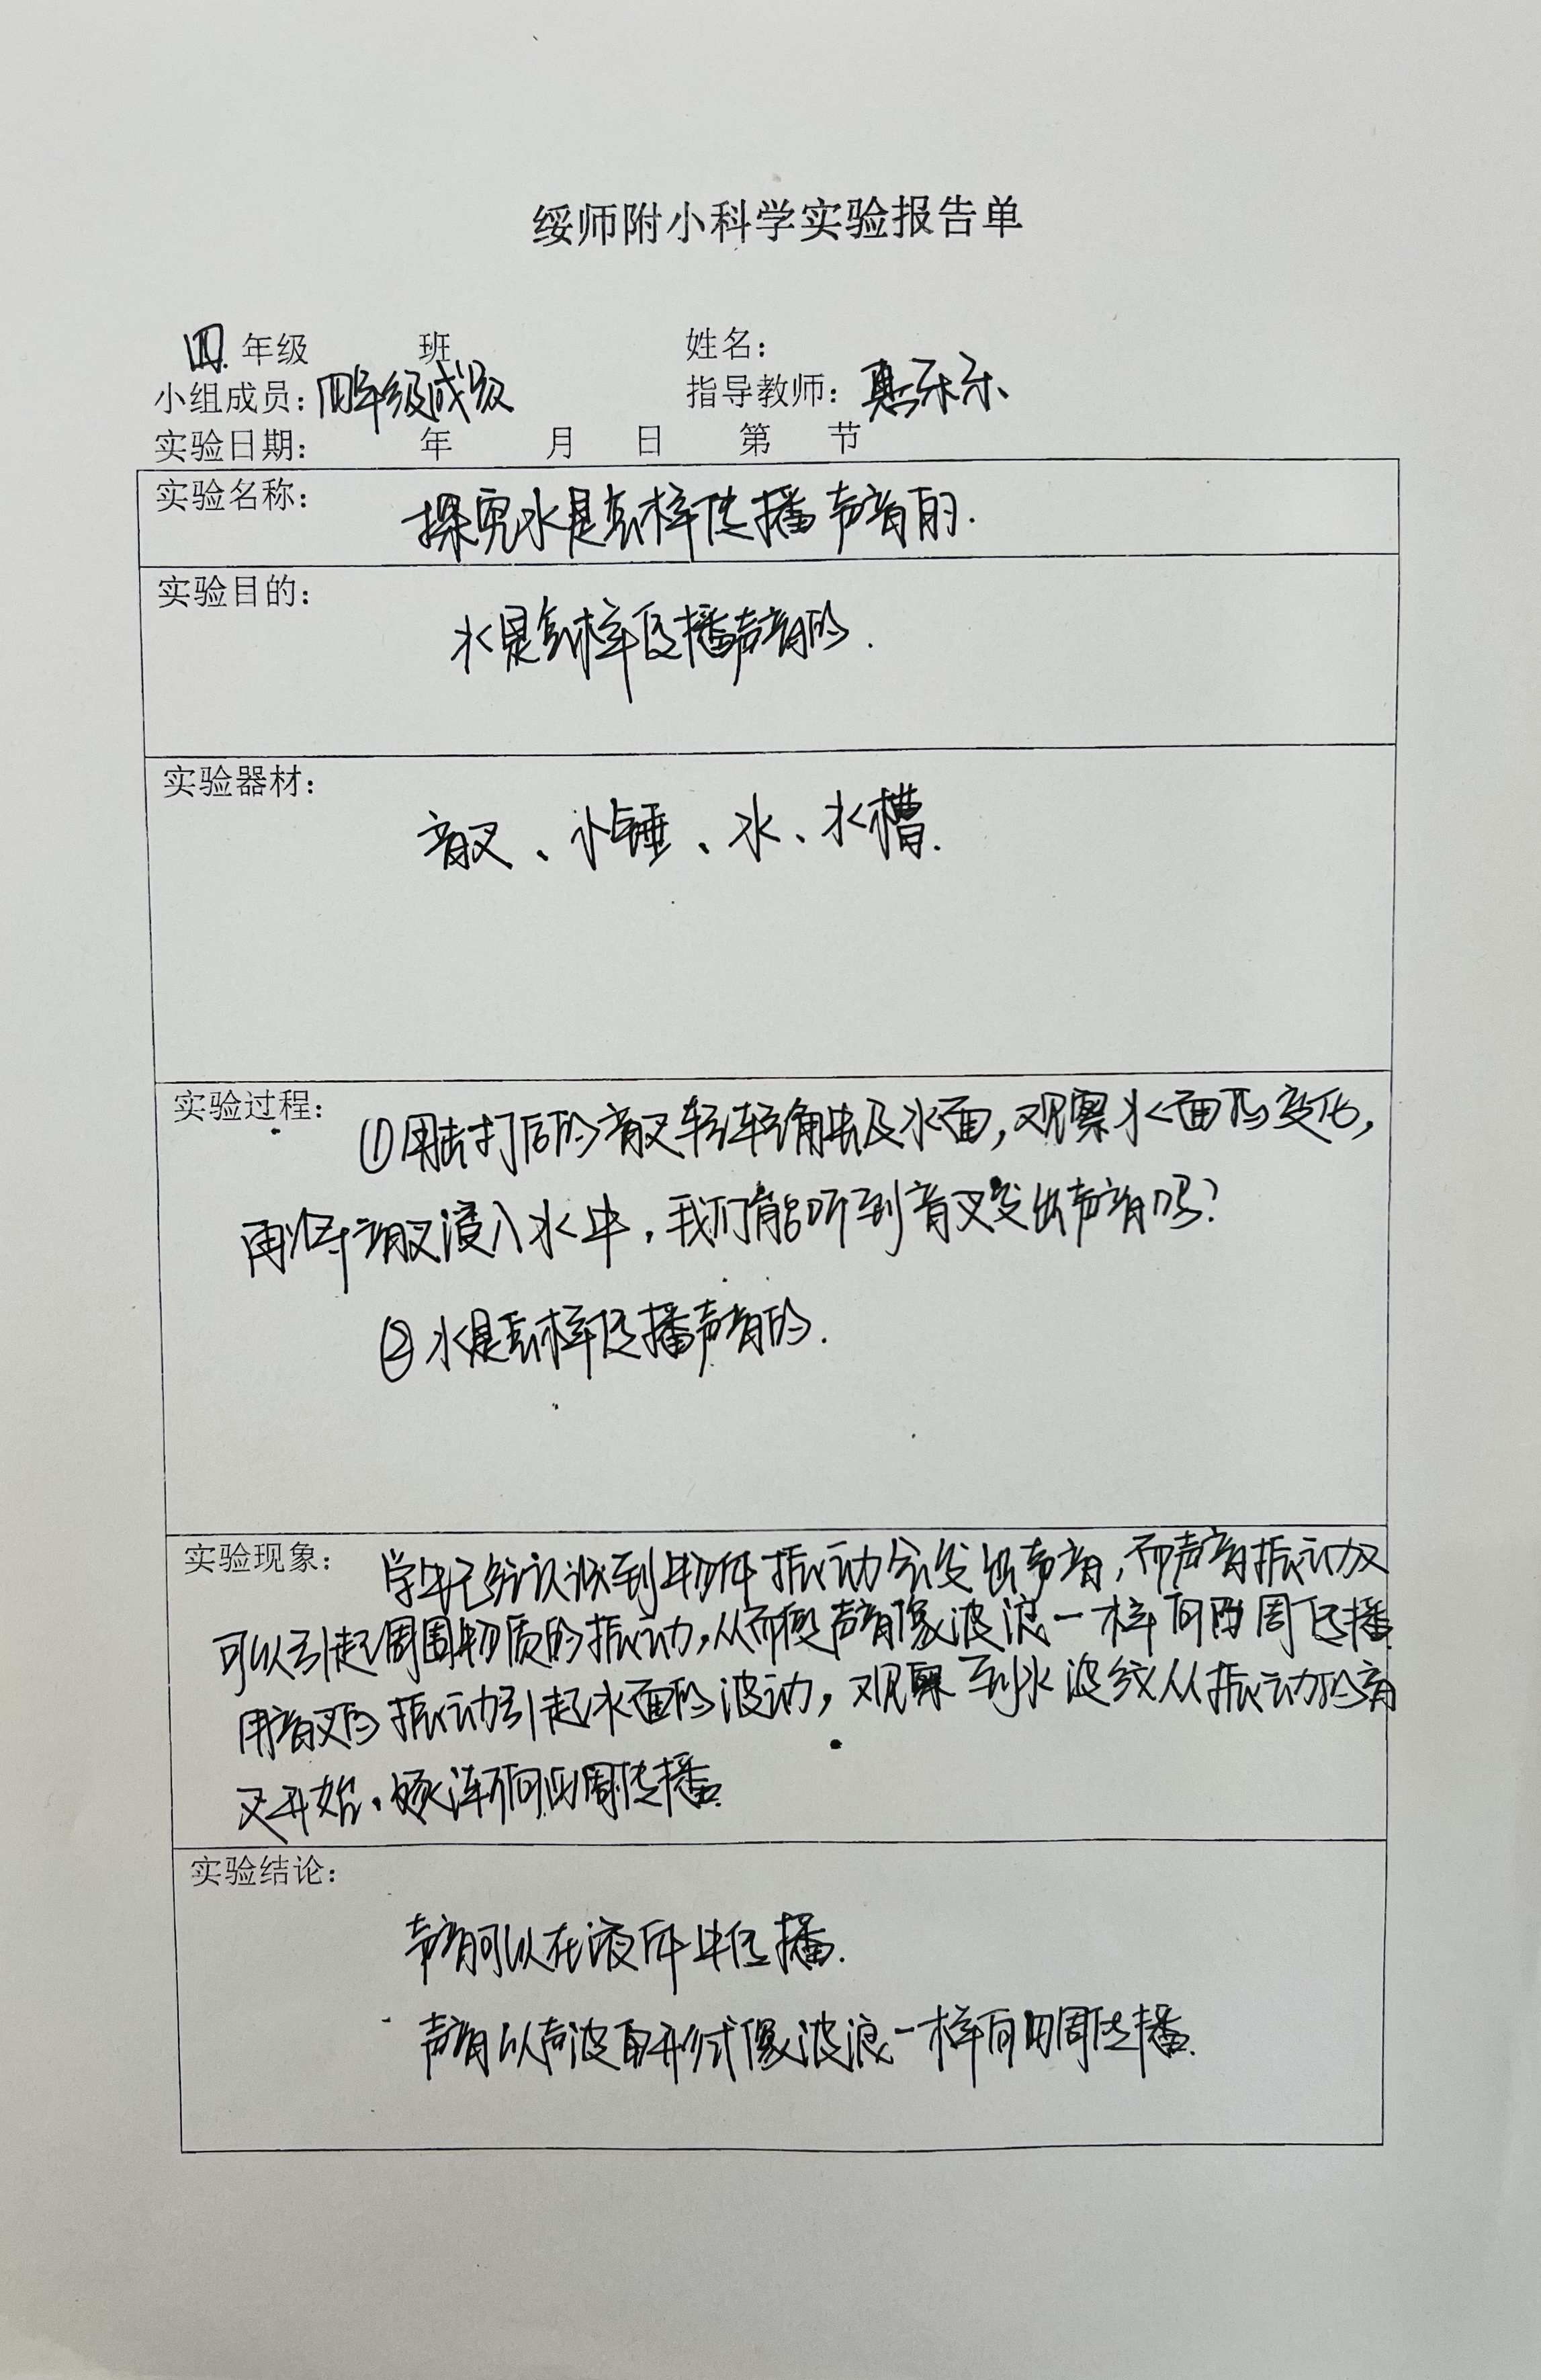 绥师附小科学实验报告单
四年级 班 姓名：
小组成员：四年级成员 指导教师：惠乐乐
实验日期： 年 月 日 第 节
实验名称： 探究水是怎样传播声音的.
实验目的：
水是怎样传播声音的.
实验器材：
音叉、小锤、水、水槽.
实验过程： ①用击打后的音叉轻轻触及水面,观察水面的变化,
再将音叉浸入水中,我们能听到音叉发出声音吗?
②水是怎样传播声音的.
实验现象： 学生已经认识到物体振动会发出声音,而声音振动又
可以引起周围物质的振动,从而使声音像波浪一样向四周传播.
用音叉的振动引起水面的波动,观察到水波纹从振动的音
叉开始,逐渐向四周传播.
实验结论：
声音可以在液体中传播.
声音以声波的形式像波浪一样向四周传播.